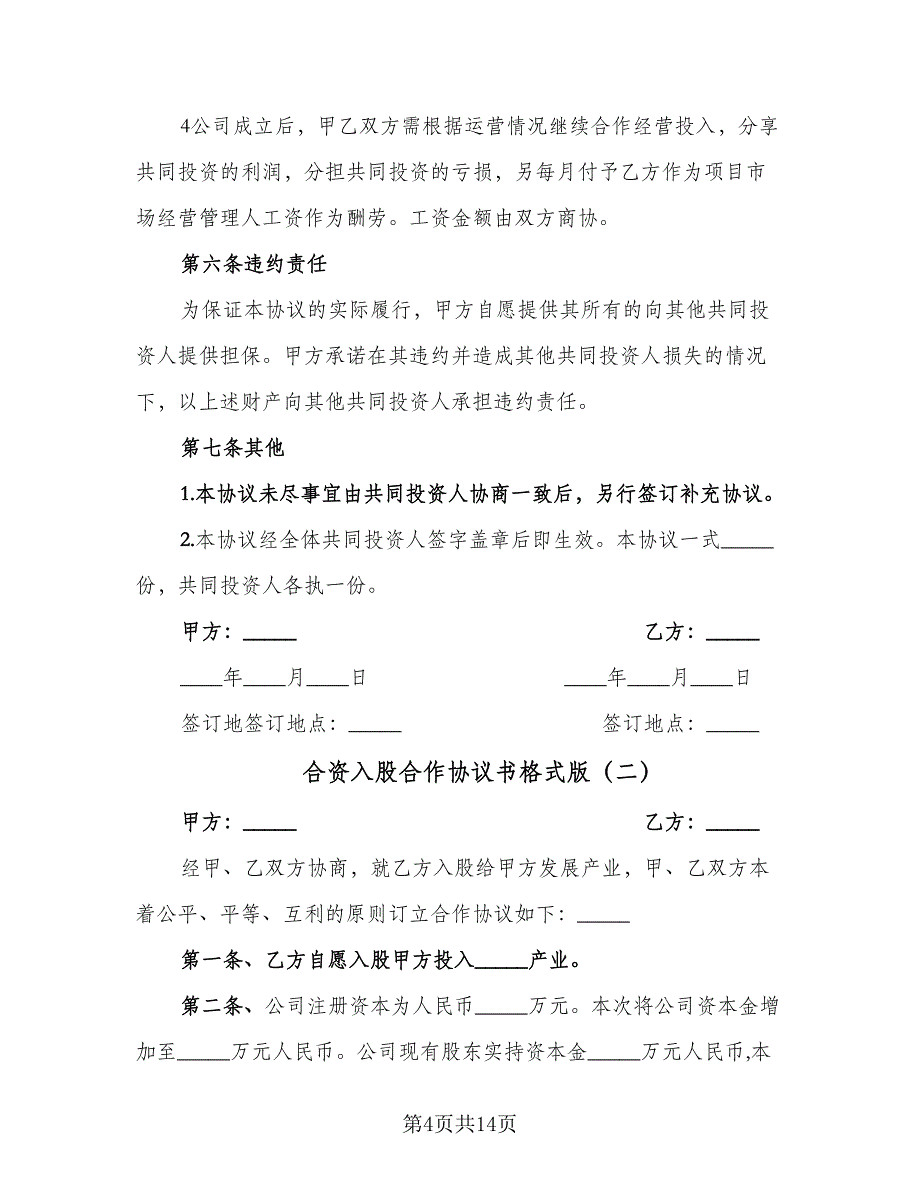 4公司成立后，甲乙双方需根据运营情况继续合作经营投入，分享
共同投资的利润，分担共同投资的亏损，另每月付予乙方作为项目市
场经营管理人工资作为酬劳。工资金额由双方商协。
第六条违约责任
为保证本协议的实际履行，甲方自愿提供其所有的向其他共同投
资人提供担保。甲方承诺在其违约并造成其他共同投资人损失的情况
下，以上述财产向其他共同投资人承担违约责任。
第七条其他
1.本协议未尽事宜由共同投资人协商一致后，另行签订补充协议。
2.本协议经全体共同投资人签字盖章后即生效。本协议一式_____
份，共同投资人各执一份。
甲方：_____ 乙方：_____
____年____月____日 ____年____月____日
签订地签订地点：_____ 签订地点：_____
合资入股合作协议书格式版（二）
甲方：_____ 乙方：_____
经甲、乙双方协商，就乙方入股给甲方发展产业，甲、乙双方本
着公平、平等、互利的原则订立合作协议如下：_____
第一条、乙方自愿入股甲方投入_____产业。
第二条、公司注册资本为人民币_____万元。本次将公司资本金增
加至_____万元人民币。公司现有股东实持资本金_____万元人民币,本
第4页共14页